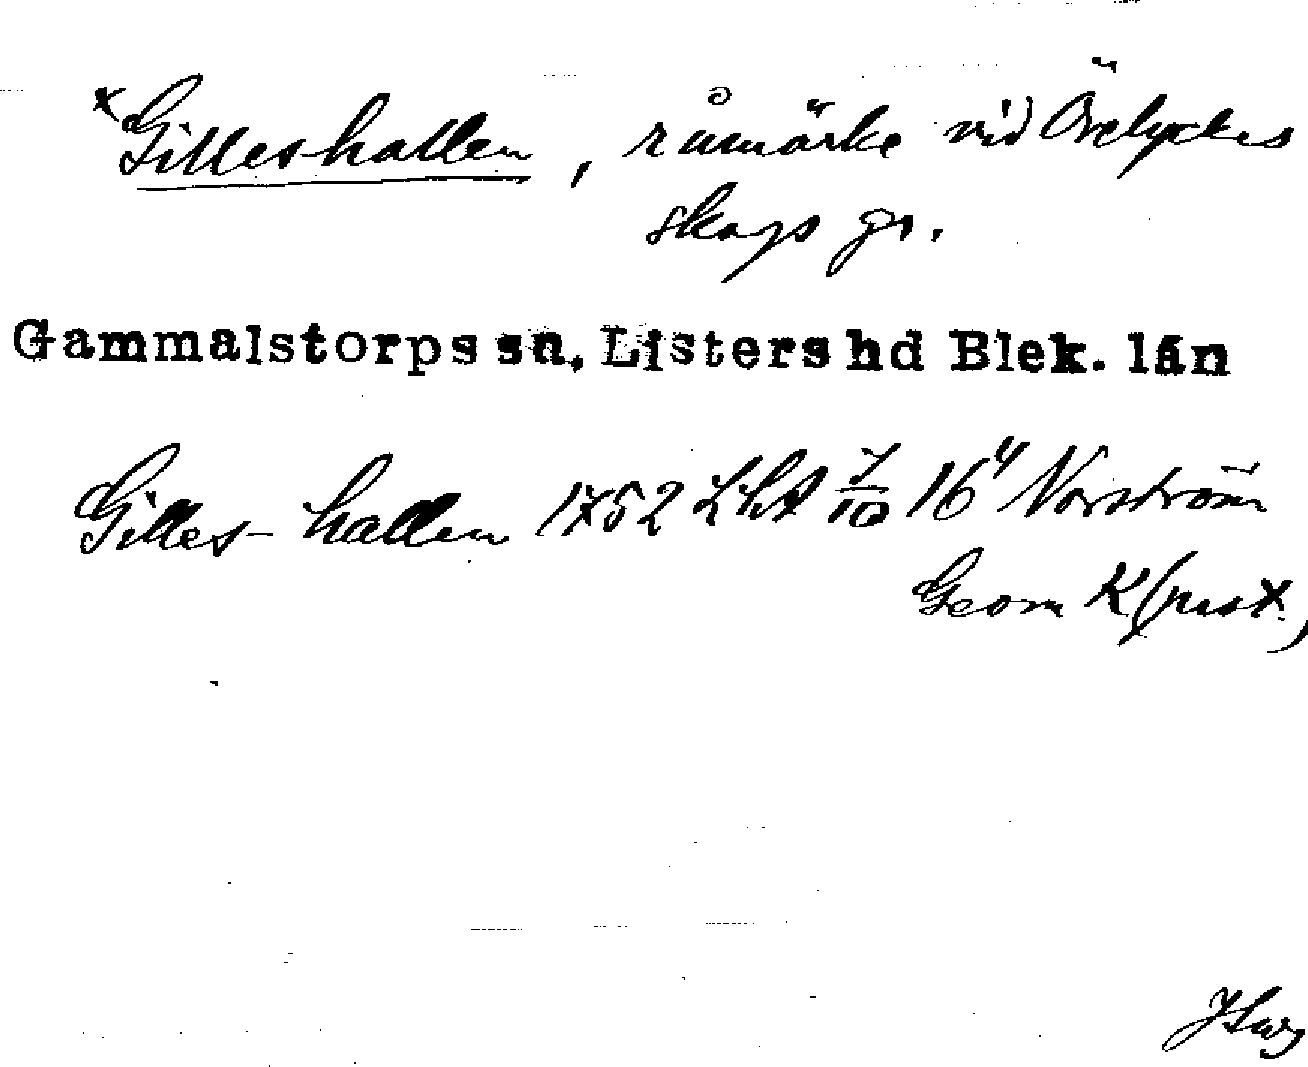 x Gilleshallen, råmärke vid Örelyckes
skogs gr.
Gammalstorps sn, Listers hd Blek. län
Gilles-hallen 1752 Lht 7/10 16" Norström
Geom K(pest.)